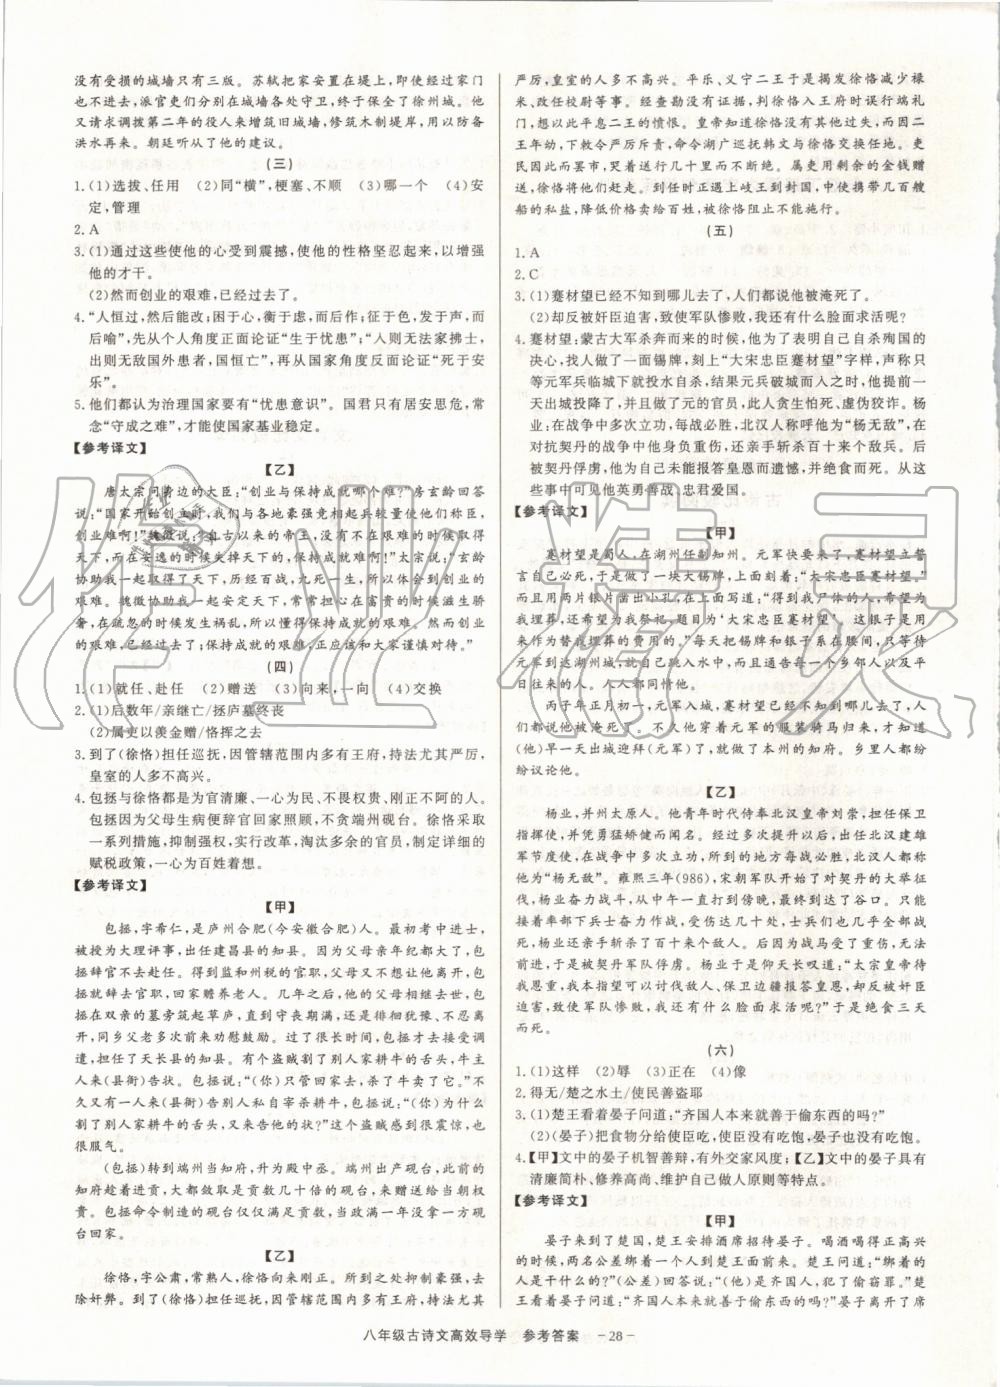 没有受损的城墙只有三版。苏轼把家安置在堤上,即使经过家门
也不进去,派官吏们分别在城墙各处守卫,终于保全了徐州城。他
又请求调拨第二年的役人来增筑旧城墙,修筑木制堤岸,用以防备
洪水再来。朝廷听从了他的建议。
(三)
1.(1)选拔、任用 (2)同“横”,梗塞、不顺 (3)哪一个 (4)安
定,管理
2. A
3.(1)通过这些使他的心受到震撼,使他的性格坚忍起来,以增强
他的才干。
(2)然而创业的艰难,已经过去了。
4.“人恒过,然后能改;困于心,衡于虑,而后作;征于色,发于声,而
后喻”,先从个人角度正面论证“生于忧患”;“入则无法家拂士,
出则无敌国外患者,国恒亡”,再从国家角度反面论证“死于安
乐”。
5.他们都认为治理国家要有“忧患意识”。国君只有居安思危,常
念“守成之难”,才能使国家基业稳定。
【参考译文】
【乙】
唐太宗问身边的大臣:“创业与保持成就哪个难?”房玄龄回答
说:“国家开始创立时,我们与各地豪强竞相起兵较量使他们称臣,
创业难啊!”魏徵说:“自古以来的帝王,没有不在艰难的时候取得
天下,而在安逸的时候失掉天下的,保持成就难啊!”太宗说:“玄龄
协助我一起取得了天下,历经百战,九死一生,所以体会到创业的
艰难。魏徵协助我一起安定天下,常常担心在富贵的时候滋生骄
奢,在疏忽的时候发生祸乱,所以懂得保持成就的艰难。然而创业
的艰难,已经过去了;保持成就的艰难,正应该和大家谨慎对待。”
(四)
1.(1)就任、赴任 (2)赠送 (3)向来,一向 (4)交换
2.(1)后数年/亲继亡/拯庐墓终丧
(2)属吏以羡金赠/恪挥之去
3.到了(徐恪)担任巡抚,因管辖范围内多有王府,持法尤其严厉,
皇室的人多不高兴。
4.包拯与徐恪都是为官清廉、一心为民、不畏权贵、刚正不阿的人。
包拯因为父母生病便辞官回家照顾,不贪端州砚台。徐恪采取
一系列措施,抑制强权,实行改革,淘汰多余的官员,制定详细的
赋税政策,一心为百姓着想。
【参考译文】
【甲】
包拯,字希仁,是庐州合肥(今安徽合肥)人。最初考中进士,
被授为大理评事,出任建昌县的知县。因为父母亲年纪都大了,包
拯辞官不去赴任。得到监和州税的官职,父母又不想让他离开,包
拯就辞去官职,回家赡养老人。几年之后,他的父母相继去世,包
拯在双亲的墓旁筑起草庐,直到守丧期满,还是徘徊犹豫、不忍离
去,同乡父老多次前来劝慰鼓励。过了很长时间,包拯才去接受调
遣,担任了天长县的知县。有个盗贼割了别人家耕牛的舌头,牛主
人来(县衙)告状。包拯说:“(你)只管回去,杀了牛卖了它。”不
久又有一人来(县衙)告别人私自宰杀耕牛,包拯说:“(你)为什么
割了别人家耕牛的舌头,又来告他的状?”这个盗贼感到很震惊,也
很服气。
(包拯)转到端州当知府,升为殿中丞。端州出产砚台,此前的
知府趁着进贡,大都敛取是贡数几十倍的砚台,来赠送给当朝权
贵。包拯命令制造的砚台仅仅满足贡数,当政满一年没拿一方砚台
回家。
【乙】
徐恪,字公肃,常熟人,徐恪向来刚正。所到之处抑制豪强,去
除奸弊。到了(徐恪)担任巡抚,因管辖范围内多有王府,持法尤其
严厉,皇室的人多不高兴。平乐、义宁二王于是揭发徐恪减少禄
米、改任校尉等事。经查勘没有证据,判徐恪入王府时误行端礼
门,想以此平息二王的愤恨。皇帝知道徐恪没有其他过失,而因二
王年幼,下敕令严厉斥责,命令湖广巡抚韩文与徐恪交换任地。吏
民因此而罢市,哭着送行几十里而不断绝。属吏用剩余的金钱赠
送,徐恪将他们赶走。到任时正遇上岐王到封国,中使携带几百艘
船的私盐,降低价格卖给百姓,被徐恪阻止不能施行。
(五)
1. A
2. C
3.(1)蹇材望已经不知到哪儿去了,人们都说他被淹死了。
(2)却反被奸臣迫害,致使军队惨败,我还有什么脸面求活呢?
4.蹇材望:蒙古大军奔奔而来的时候,他为了表明自己自杀殉国的
决心,找人做了一面锡牌,刻上“大宋忠臣蹇材望”字样,声称只
等元军兵临城下就投水自杀,结果元兵破城而入之时,他提前一
天出城投降了,并且做了元的官员,此人贪生怕死、虚伪狡诈。杨
业:在战争中多次立功,每战必胜,北汉人称呼他为“杨无敌”,在
对抗契丹的战争中他身负重伤,还亲手斩杀百十来个敌人,战败
被俘后,他为自己未能报答皇恩而遗憾,并绝食而死。从这
些事中可见他英勇善战、忠君爱国。
【参考译文】
【甲】
蹇材望是蜀人,在湖州任副知州。元军快要来了,蹇材望立誓
言自己必死,于是做了一块大锡牌,上面刻着:“大宋忠臣蹇材望。”
而且用两片银片凿出小孔,在上面写道:“得到我尸体的人,希望为
我埋葬,还希望为我祭祀,题目为‘大宋忠臣蹇材望’。这银子是用
来作为替我埋葬的费用的。”每天把锡牌和银子系在腰间,只等待
元军到达湖州城,就自己跳入水中,而且通告每一个乡邻以及平
日往来的人。人人都同情他。
丙子年正月初一,元军入城,蹇材望已经不知到哪儿去了,人
们都说他被淹死了。不久他穿着元军的服装骑马归来,才知道
(他)早一天出城迎拜(元军)了,就做了本州的知府。乡里人都纷
纷议论他。
【乙】
杨业,并州太原人。他青年时代侍奉北汉皇帝刘崇,担任保卫
指挥使,并凭勇猛矫健而闻名。经过多次提升以后,出任北汉建雄
军节度使,在战争中多次立功,所到的地方每战必胜,北汉人都称
他为“杨无敌”。雍熙三年(986),宋朝军队开始了对契丹的大举征
伐,杨业奋力作战,从中午一直打到傍晚,最终到达了谷口。只能
接着率部下兵士奋力作战,受伤达几十处,士兵们也几乎全部战
死,杨业还亲手斩杀了百十来个敌人。后因为战马受了重伤,无法
前进,于是被契丹军队俘虏。杨业于是仰天长叹道:“太宗皇帝待
我恩重,我本指望可以讨伐敌人、保卫边疆报答皇恩,却反被奸臣
迫害,致使军队惨败,我还有什么脸面求活呢?”于是绝食三天
而死。
(六)
1.(1)这样 (2)辱 (3)正在 (4)像
2.得无/楚之水土/使民善盗耶
3.(1)楚王看着晏子问道:“齐国人本来就善于偷东西的吗?”
(2)(晏子)把食物分给使臣吃,使臣没有吃饱,晏子也没有吃饱。
4.【甲】文中的晏子机智善辩,有外交家风度;【乙】文中的晏子具有
清廉简朴、修养高尚、维护自己做人原则等特点。
【参考译文】
【甲】
晏子来到了楚国,楚王安排酒席招待晏子。喝酒喝得正高兴
的时候,两名公差绑着一个人来到楚王面前来。楚王问道:“绑着的
人是干什么的?”(公差)回答说:“(他)是齐国人,犯了偷窃罪。”楚王
看着晏子问道:“齐国人本来就善于偷东西的吗?”晏子离开了席
八年级古诗文高效导学 参考答案 －28－